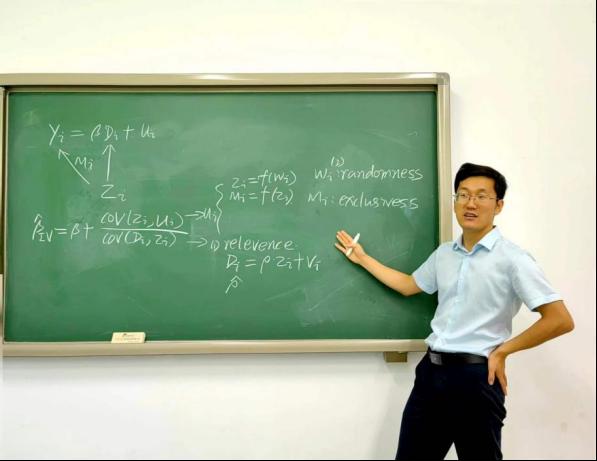 Yi = βDi + Ui
Mi
Zi
β̂IV = β + cov(Zi, Ui) / cov(Di, Zi)
→ Ui { Zi = f(Wi)
Mi = f(Zi)
(2)
Wi: randomness
Mi: exclusivess
→ (1) relevence.
Di = ρ·Zi + Vi
ρ̂